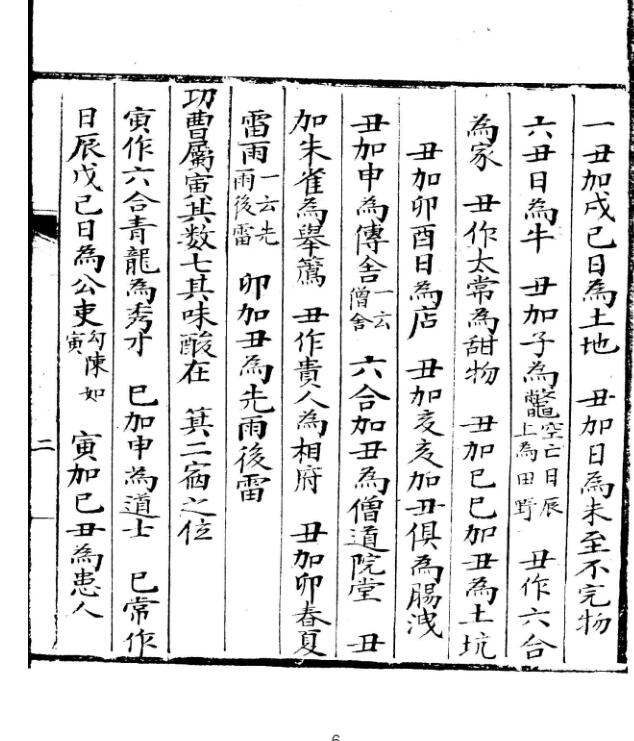 一丑加戌己日為土地　丑加日為未至不完物
六丑日為牛　丑加子為鱉空亡日辰上為田野　丑作六合
為家　丑作太常為甜物　丑加巳巳加丑為土坑
丑加卯酉日為店　丑加亥亥加丑俱為腸洩
丑加申為傳舍一云僧舍　六合加丑為僧道院堂　丑
加朱雀為舉薦　丑作貴人為相府　丑加卯春夏
雷雨一云先雨後雷　卯加丑為先雨後雷
功曹屬寅其数七其味酸在　箕二宿之位
寅作六合青龍為秀才　巳加申為道士　巳常作
日辰戊己日為公吏勾陳如寅　寅加巳丑為患人
二
6